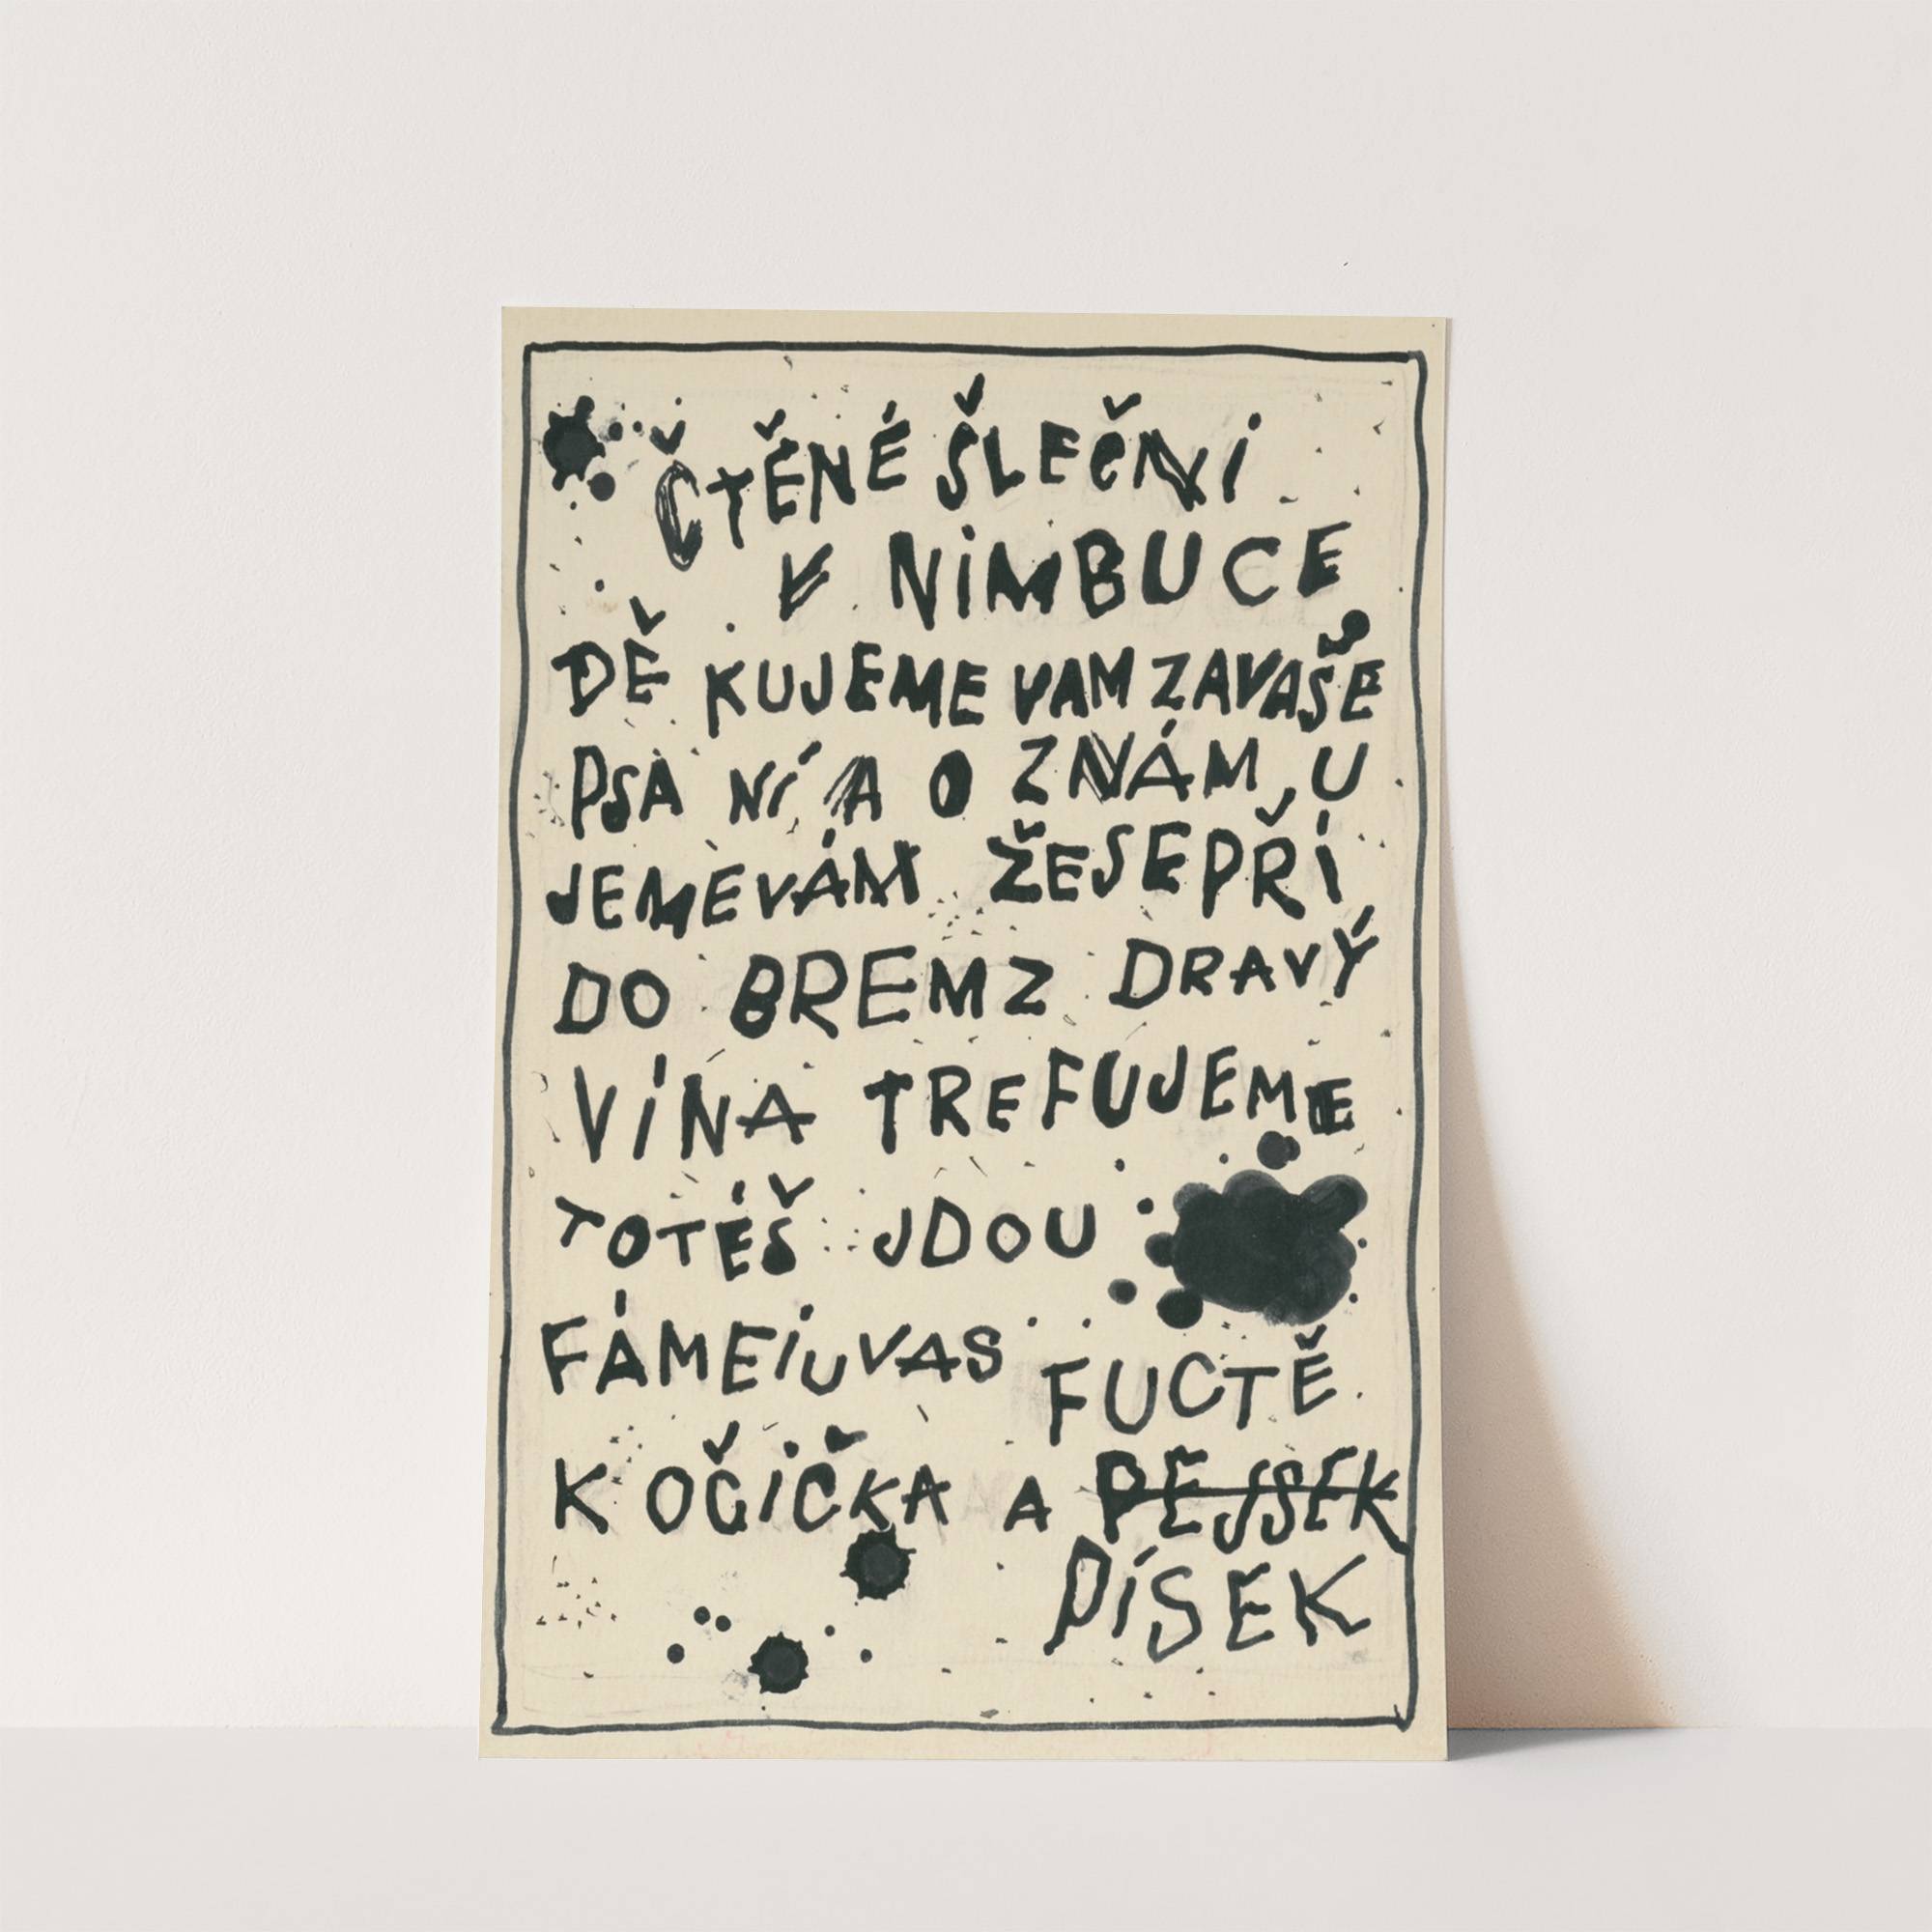 ČTĚNÉ ŠLEČNI
V NIMBUCE
DĚ KUJEME VAM ZAVAŠE
PSA NÍ A O ZNÁM U
JEMEVÁM ŽESEPŘÍ
DO BREMZ DRAVÝ
VÍNA TREFUJEME
TOTÉŠ JDOU
FÁMEIUVAS FUCTĚ
K OČIČKA A PEJSEK
PÍSEK